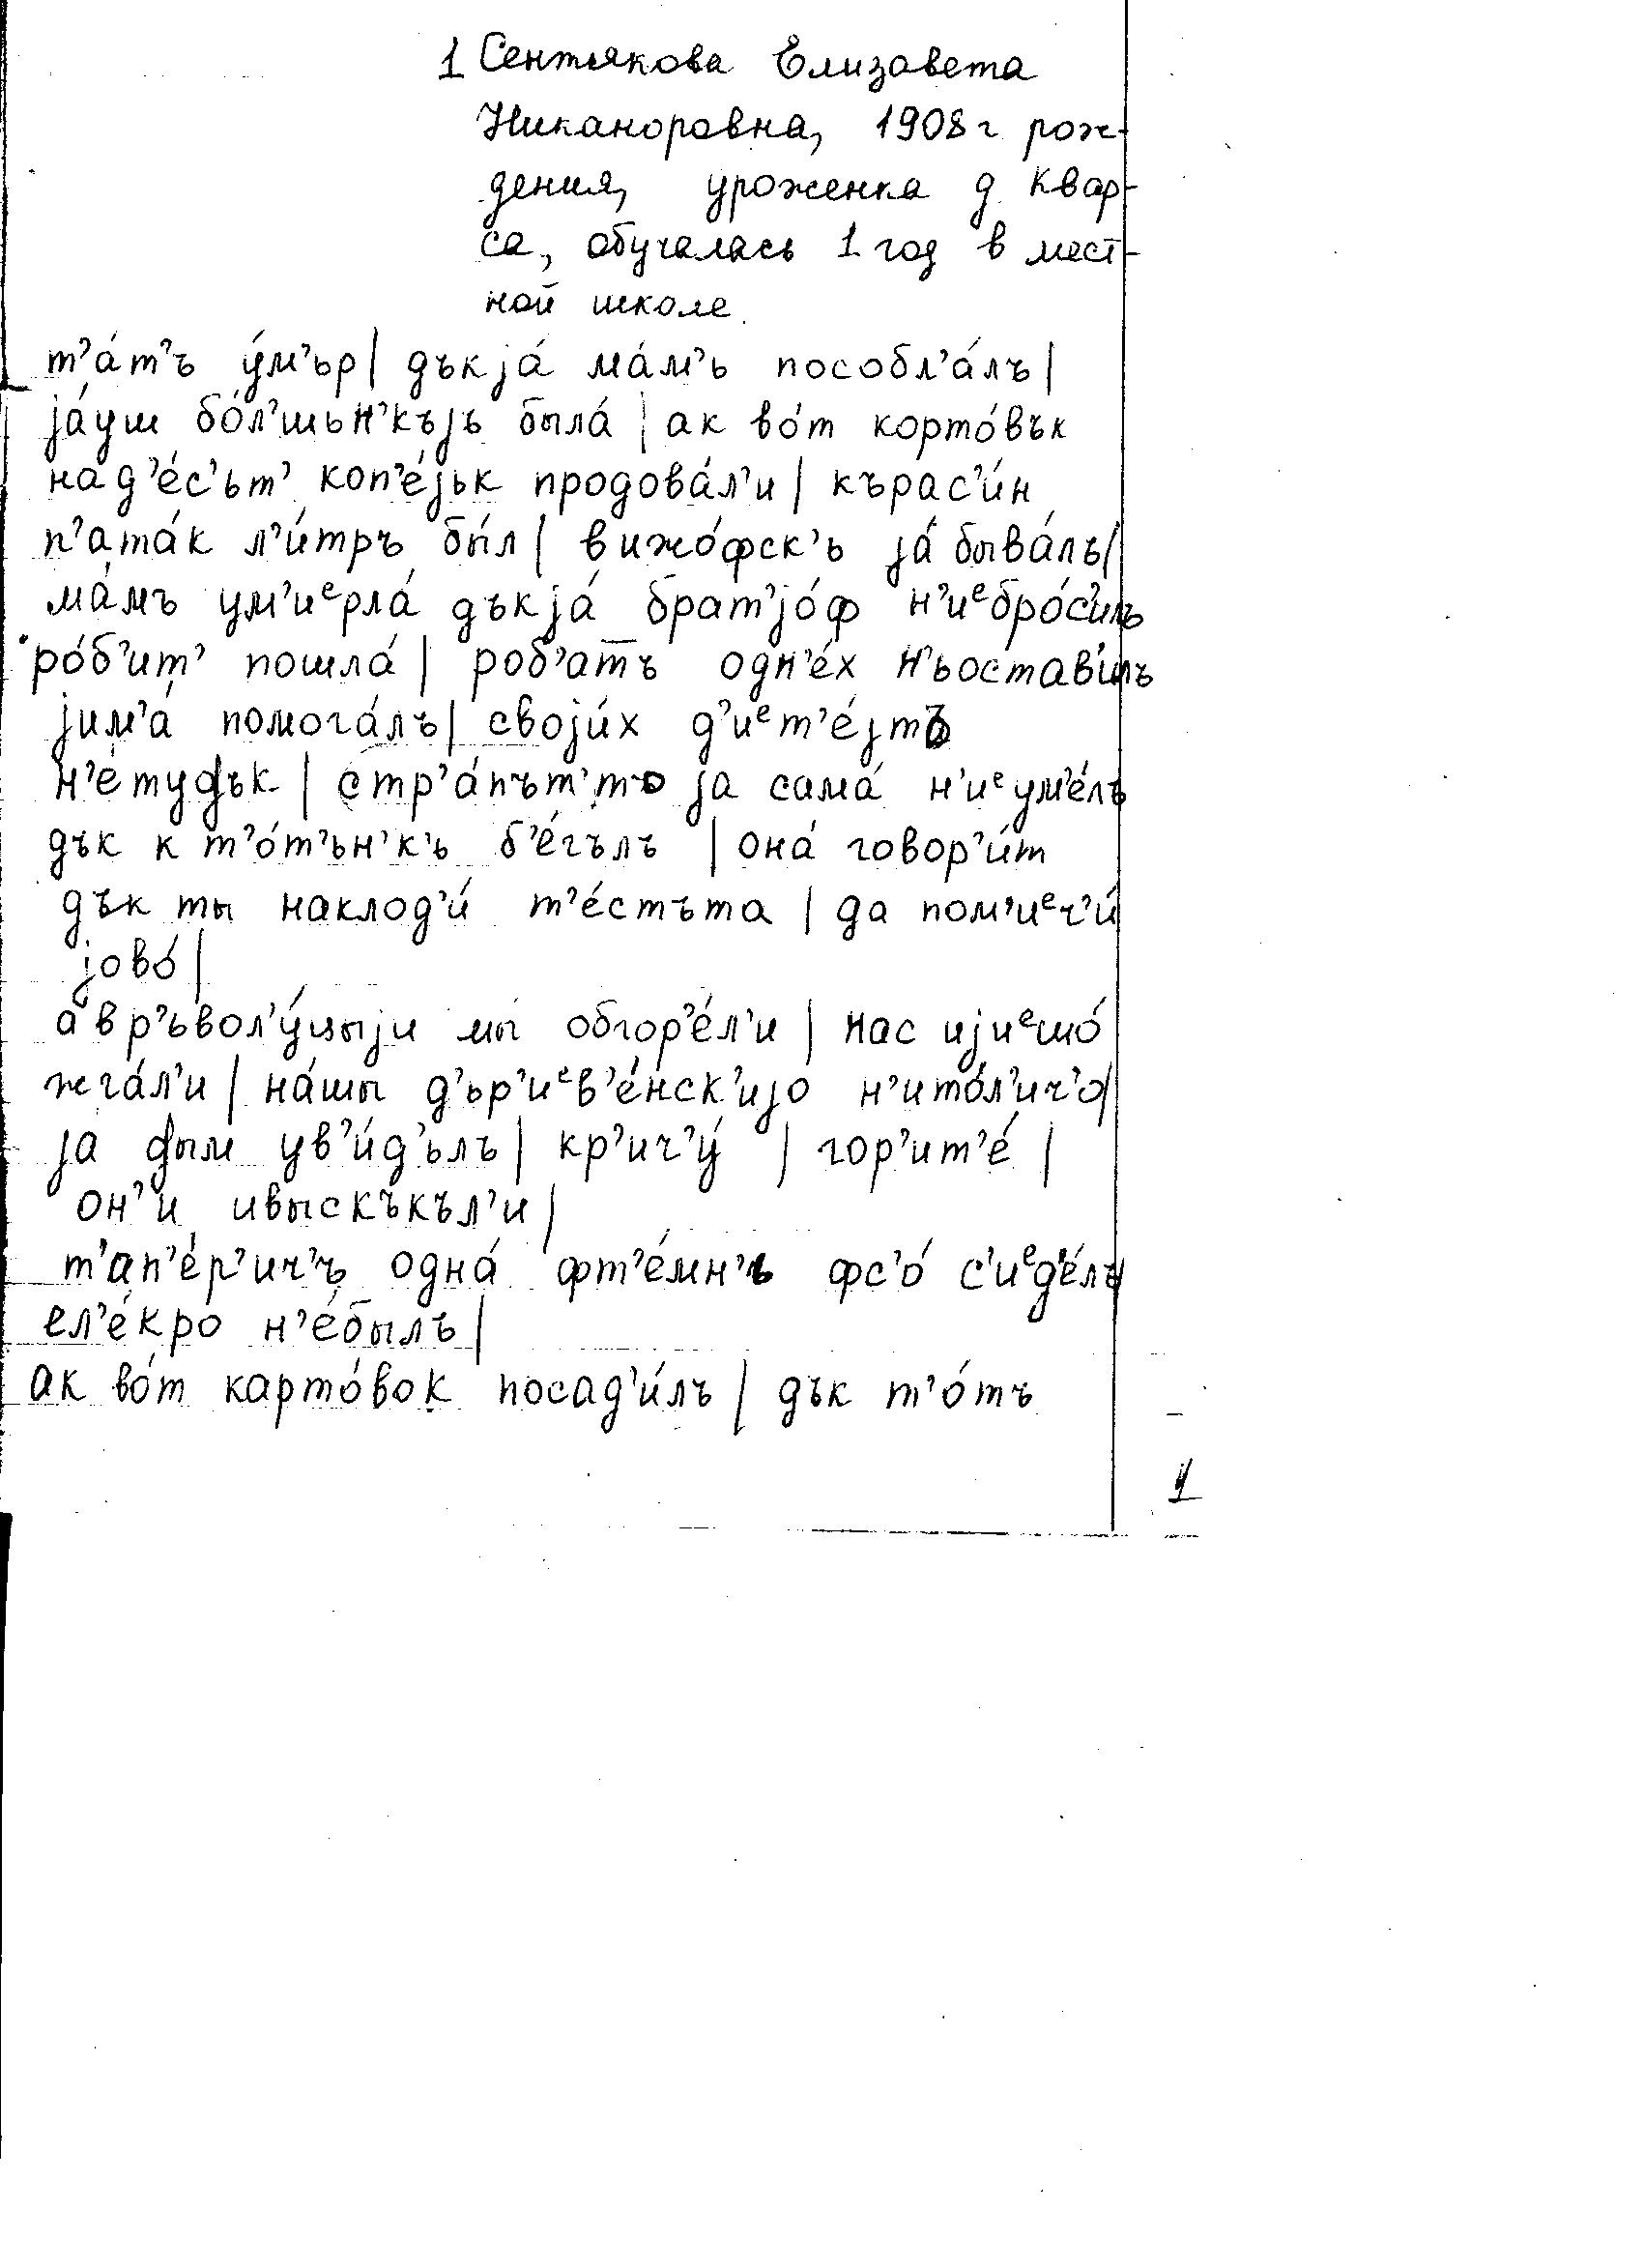 1 Сентякова Елизавета
Никаноровна, 1908 г рож-
дения, уроженка д Квар-
са, обучалась 1 год в мест-
ной школе
т’а́т’ъ у́м’ър| дъкjа́ ма́м’ь пособл’а́лъ|
jа́уш бо́л’шьн’къjь была́ | ак во́т корто́вък
на д’е́с’ьт’ коп’е́jьк продова́л’и| кърас’и́н
п’ата́к л’и́тръ бы́л| вижо́фск’ь jа́ быва́лъ|
ма́мъ ум’иᵉрла́ дъкjа́ брат’jо́ф н’иᵉбро́с’илъ
ро́б’ит’ пошла́| роб’атъ одн’е́х н’ьостав’илъ
jим’а́ помога́лъ| своjи́х д’иᵉт’е́jтъ
н’е́тудък | стр’а́път’тъ jа сама́ н’иᵉум’е́лъ
дък к т’о́т’ьн’к’ь б’е́гълъ | она́ говор’и́т
дък ты наклод’и́ т’е́стъта | да пом’иᵉч’и́
jово́|
а вр’ьвол’у́цыjи мы обгор’е́л’и | нас иjиᵉшо́
жга́л’и | на́шы д’ьр’иᵉв’е́нск’иjо н’ито́л’ич’о|
jа дым ув’и́д’ьлъ| кр’ич’у́ | гор’ит’е́ |
он’и ивыскъкъл’и|
т’ап’е́р’ич’ъ одна́ фт’е́мн’ь фс’о́ с’иᵉд’е́лъ
ел’е́кро н’е́былъ|
ак во́т карто́вок посад’и́лъ | дък т’о́тъ
1